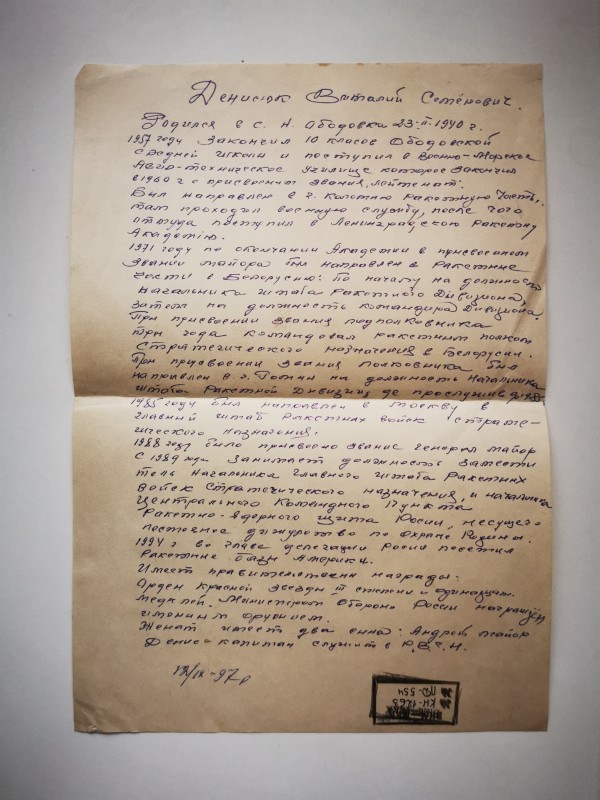 Денисюк Виталий Семёнович.
Родился в с. Н. Ободовка 23-II-1940 г.
1957 году закончил 10 класов Ободовской
средней школи и поступил в Военно-Морское
Авто-техническое Училище которое закончил
в 1960 г с присвоением звания, лейтенат.
Бил направлен в г. Ракетную Часть,
там проходил военную службу, после чего
оттуда поступил в Ленинградскую Ракетну
Академию.
1971 году по окенчании Академии в присвоением
звании майора бил направлен в Ракетние
части в Белорусию: По началу на должность
Начальника штаба Ракетного Дивизиона,
затем на должность командира Дивизиона.
При присвоении звания подполковника
три года командовал ракетним полком
Стратегического назначения в Белорусии.
При присвоении звания полковника бил
направлен в г. на должность Начальника
штаба Ракетной Дивизии де прослушив до 1985
1985 году бил направлен в Москву в
главний штаб Ракетних войск страте-
гического назначения.
1988 году било присвоено звание генерал майор
С 1989 года занимает должность замести
тель Начальника Главного штаба Ракетних
войск Стратегического назначения, и начальника
Центрального Командного Пункта
Ракетно-Ядерного щита Росии, несущего
постояное дежурство по охране Родины.
1994 г во главе делегации Росии посетил
Ракетние бази Америки.
Имеет правительствени награди:
Орден Красной Звезды III степени и одинадцать
медалей. Министром Оборони Росии награждён
именим оружием.
Женат имеет два сина: Андрей майор
Денис капитан служит в Р.В.С.Н.
КН-1263